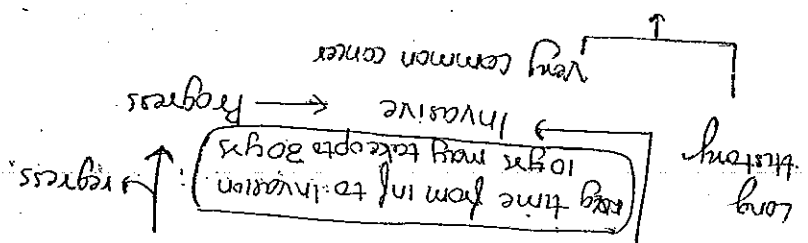 Long
History
avg time from inf to invasion
10 yrs may take upto 30 yrs
→ regress
Invasive → Progress
Very common cancer